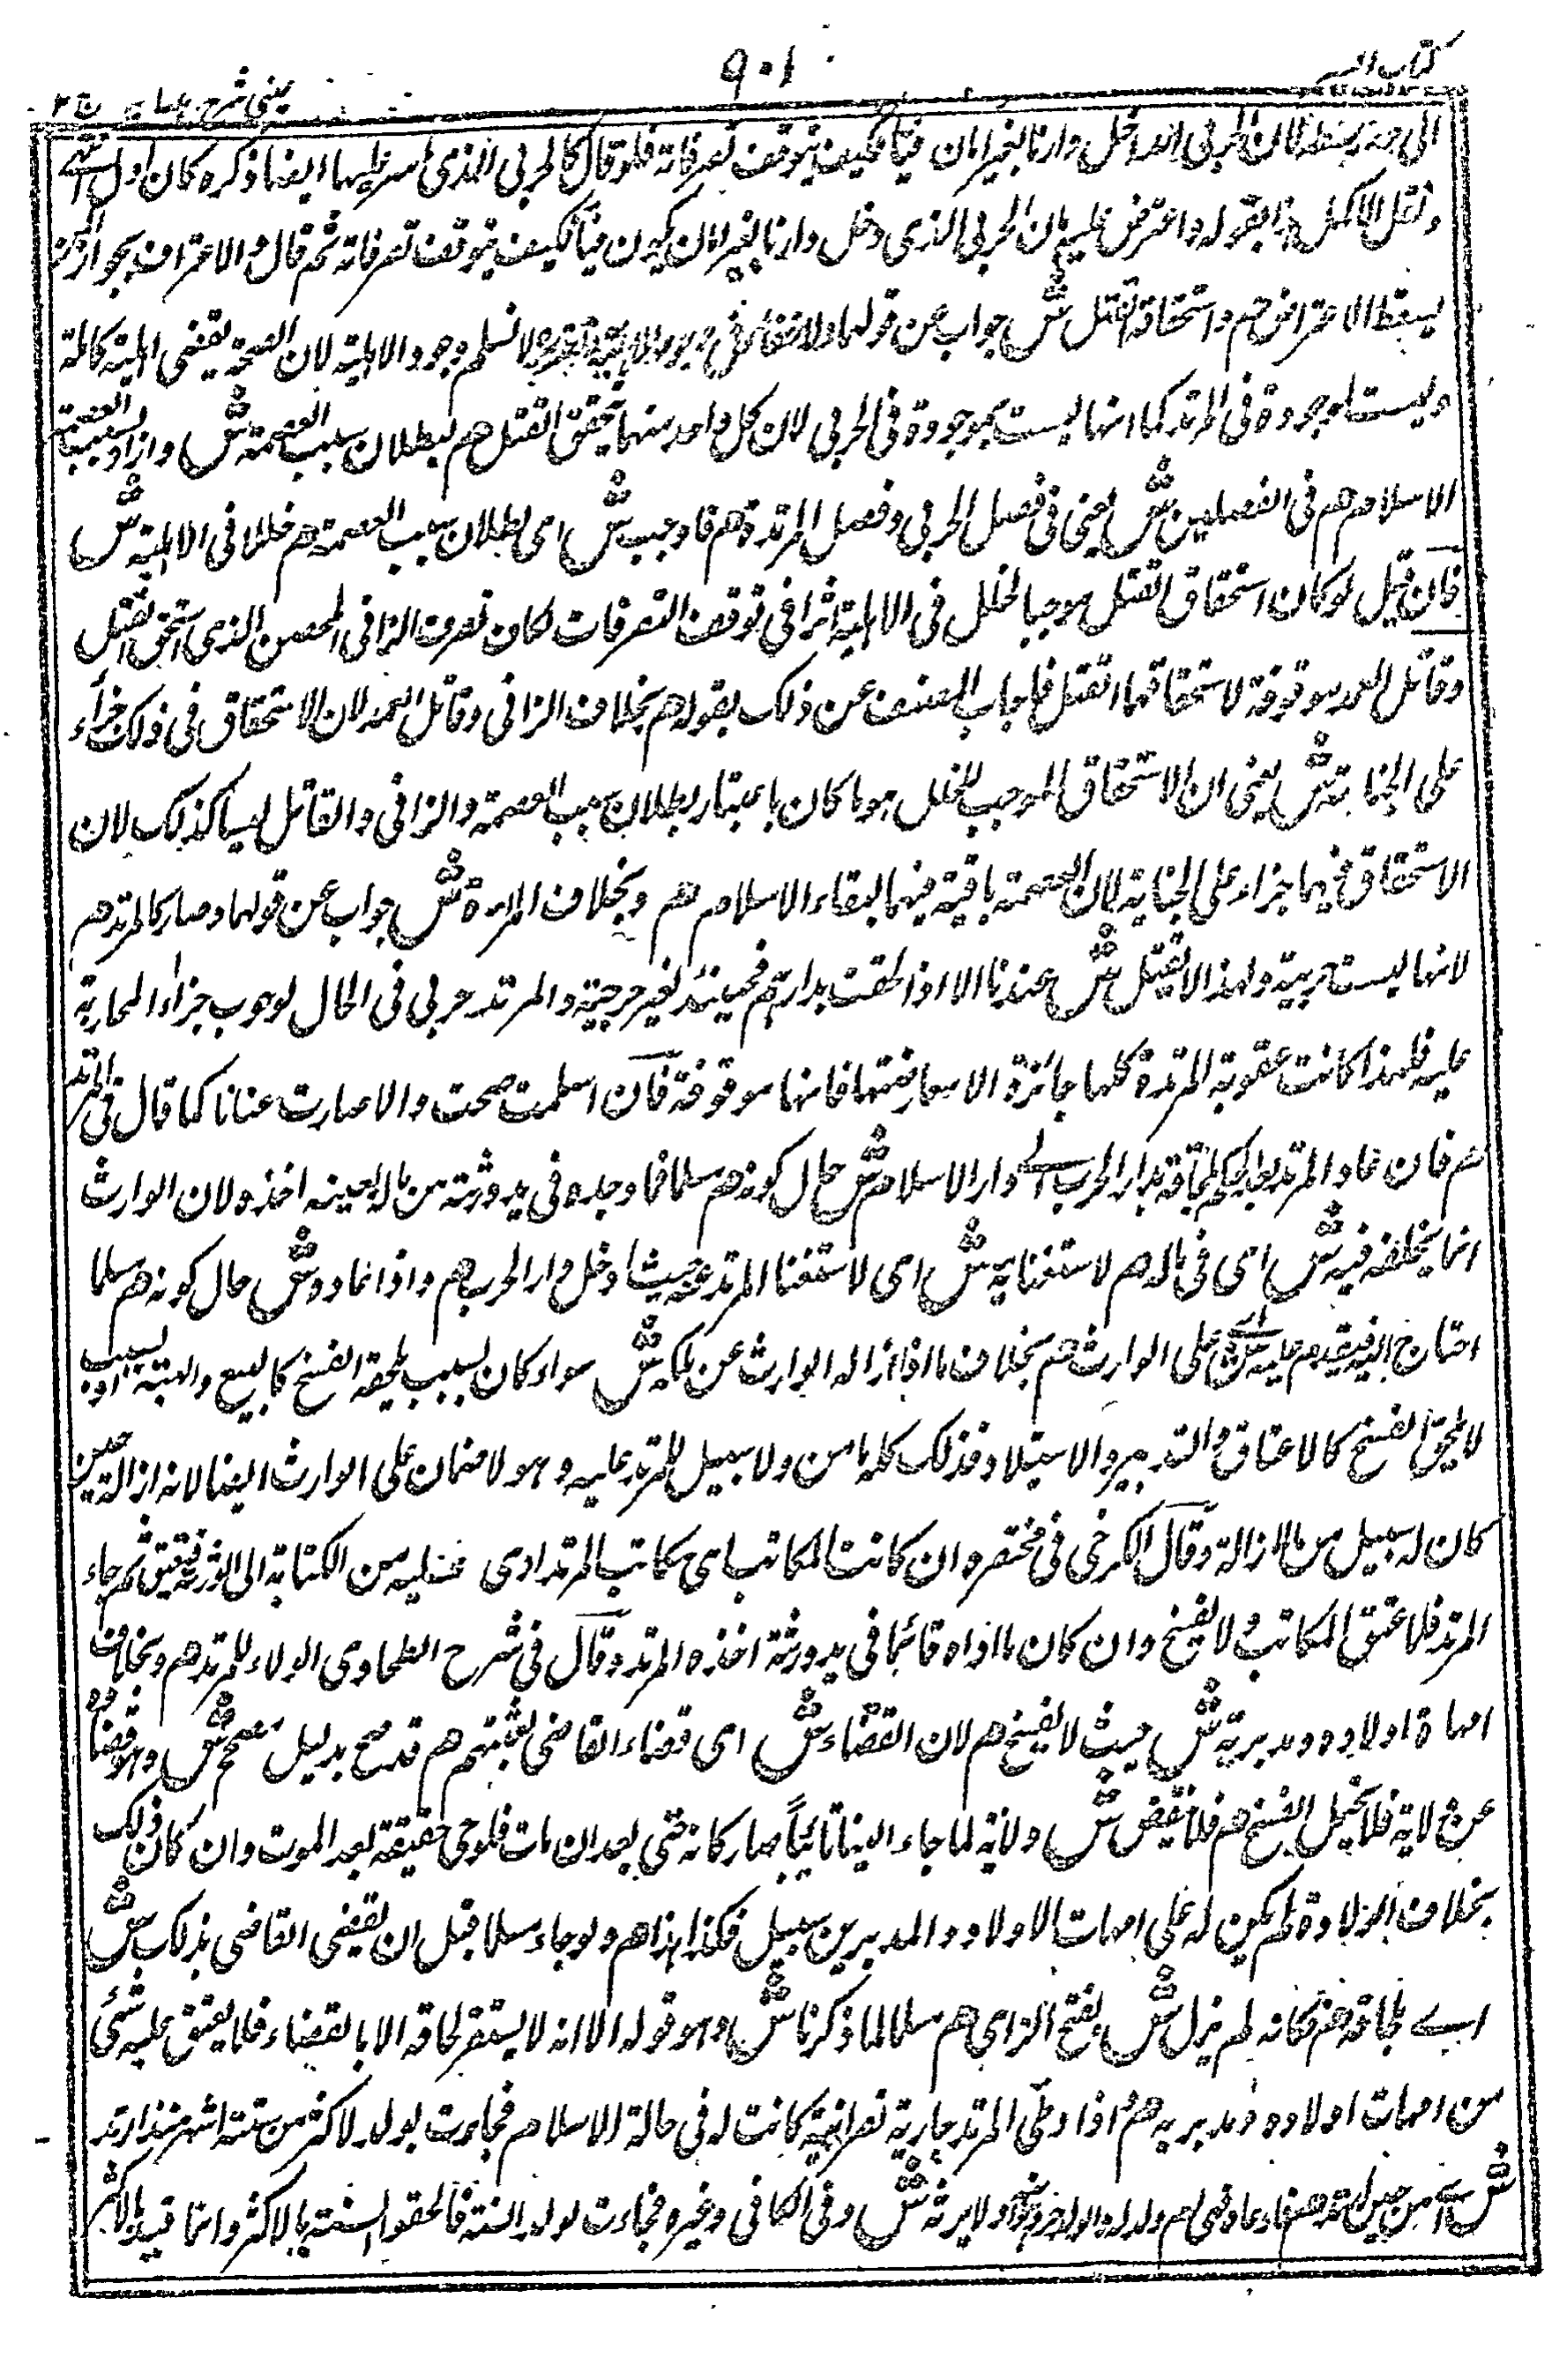 كتاب السير
٩٠١
عينى شرح هدايه ج ٢
لان الحربي اذا دخل دارنا بغير امان فيئا فكيف يتوقف تصرفاته فلو قال كالحربي الذي اسر عليها ايضا ذكره كان اولى انتهى
ونقل الاكمل هذا بقوله واعترض عليه بان الحربي الذي دخل دارنا بغير امان يكون فيئا فكيف يتوقف تصرفاته ثم قال والاعتراف بجواز المن
يسقط الاعتراض هم واستحقاقه القتل ش جواب عن قولهما ولا خفاء في وجود الاهلية لا نسلم وجود الاهلية لان الصحة يقتضى اهلية كاملة
وليست بموجودة فى المرتد كما انها ليست بموجودة فى الحربي لان كل واحد منهما يستحق القتل هم لبطلان سبب العصمة ش واراد بسبب العصمة
الاسلام هم فى الفصلين ش يعنى فى فصل الحربي وفصل المرتد هم فاوجب ش اى بطلان سبب العصمة هم خللا فى الاهلية ش
فان قيل لو كان استحقاق القتل موجبا لخلل فى الاهلية اثرا فى توقف التصرفات لكان تصرف الزانى المحصن الذى استحق القتل
وقاتل العمد موقوفة لاستحقاقهما القتل فاجاب المصنف عن ذلك بقوله هم بخلاف الزانى وقاتل العمد لان الاستحقاق فى ذلك جزاء
على الجناية ش يعنى ان الاستحقاق الموجب للخلل هو ما كان باعتبار بطلان سبب العصمة والزانى والقاتل ليسا كذلك لان
الاستحقاق فيهما جزاء على الجناية لان العصمة باقية فيهما لبقاء الاسلام هم وبخلاف المرءة ش جواب عن قولهما وصار كالمرتد هم
لانها ليست حربية ولهذا لا يقتل ش عندنا الا اذا لحقت بدارهم فحينئذ تصير حربية والمرتد حربي فى الحال لوجوب جزاء المحاربة
عليه فلهذا كانت عقوبة المرتدة كلها جائزة الا مفاوضتها فانها موقوفة فان اسلمت صحت والا صارت عنانا كما قال فى المرتد
هم فان عاد المرتد بعد الحكم بلحاقه بدار الحرب الى دار الاسلام ش حال كونه هم مسلما فما وجده فى يد ورثته من ماله بعينه اخذه لان الوارث
انما يخلفه فيه ش اى فى ماله هم لاستغنايه ش اى لاستغنا المرتد عنه حيث دخل دار الحرب هم واذا عاد ش حال كونه هم مسلما
احتاج اليه فيقدم عليه ش على الوارث هم بخلاف ما اذا ازاله الوارث عن ملكه ش سواء كان بسبب يلحقه الفسخ كالبيع والهبة او بسبب
لا يلحق الفسخ كالاعتاق والتدبير والاستيلاد فذلك كله ماض ولا سبيل للمرتد عليه وهو لا ضمان على الوارث ايضا لانه ازالة حين
كان له سبيل من الازالة وقال الكرخى فى مختصره وان كانت المكاتب اى مكاتب المرتد ادى ما عليه من الكتابة الى الورثة فيعتق ثم جاء
المرتد فلا عتق المكاتب ولا يفسخ وان كان ما اداه قائما فى يد ورثته اخذه المرتد وقال فى شرح الطحاوى الولاء للمرتد هم وبخلاف
امهات اولاده ومدبريه ش حيث لا يفسخ هم لان القضاء ش اى قضاء القاضى بعتقهم هم قد صح بدليل مصحح ش وهو قضاؤه
عن ولاية فلا يحتمل الفسخ هم فلا ينقض ش ولانه لما جاء الينا تائبا صار كانه حتى بعد ان مات فلو حى حقيقة بعد الموت وان كان ذلك
بخلاف الولادة لم يكن له على امهات الاولاد والمدبرين سبيل فكذا هذا هم ولو جاء مسلما قبل ان يقضى القاضى بذلك ش
اى بلحاقه هم فكانه لم يزل ش بفتح الزاى هم مسلما لما ذكرنا ش وهو قوله الا انه لا يستقر لحاقه الا بالقضاء فلا يعتق عليه شئ
من امهات اولاده ومدبريه هم اذا وطئ المرتد جارية نصرانية كانت له فى حالة الاسلام فجاءت بولد لاكثر من ستة اشهر منذ ارتد
ش اى من حين ارتد هم فادعاه فهى ام ولد له والولد حر وهو ابنه ولا يرثه ش وفى الكافى وغيره فجاءت بولد لستة فالحقوا الستة بالاكثر وانما قيد بالاكثر